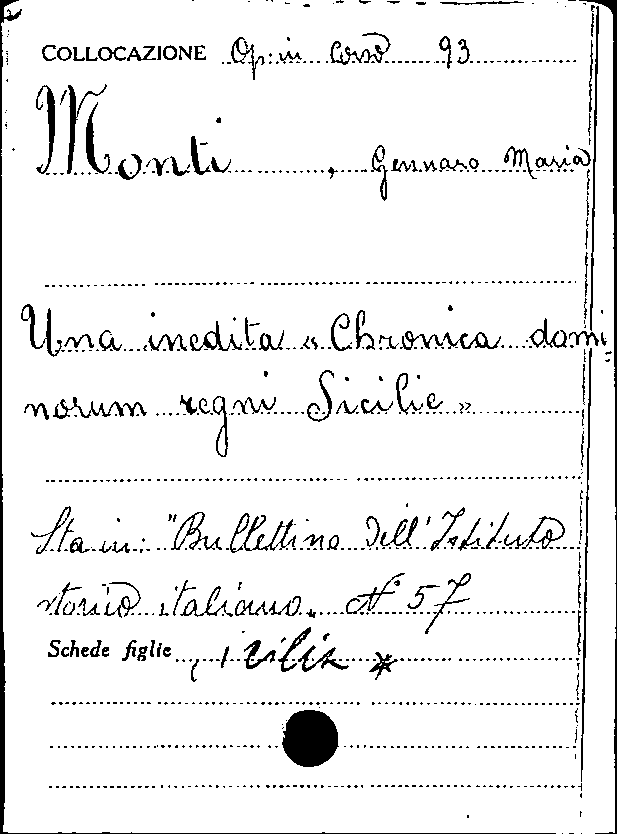 COLLOCAZIONE Op. in Corso 93
Monti, Gennaro Maria
Una inedita « Chronica domi-
norum regni Sicilie »
Sta in: "Bullettino dell'Istituto
storico italiano" N° 57
Schede figlie *